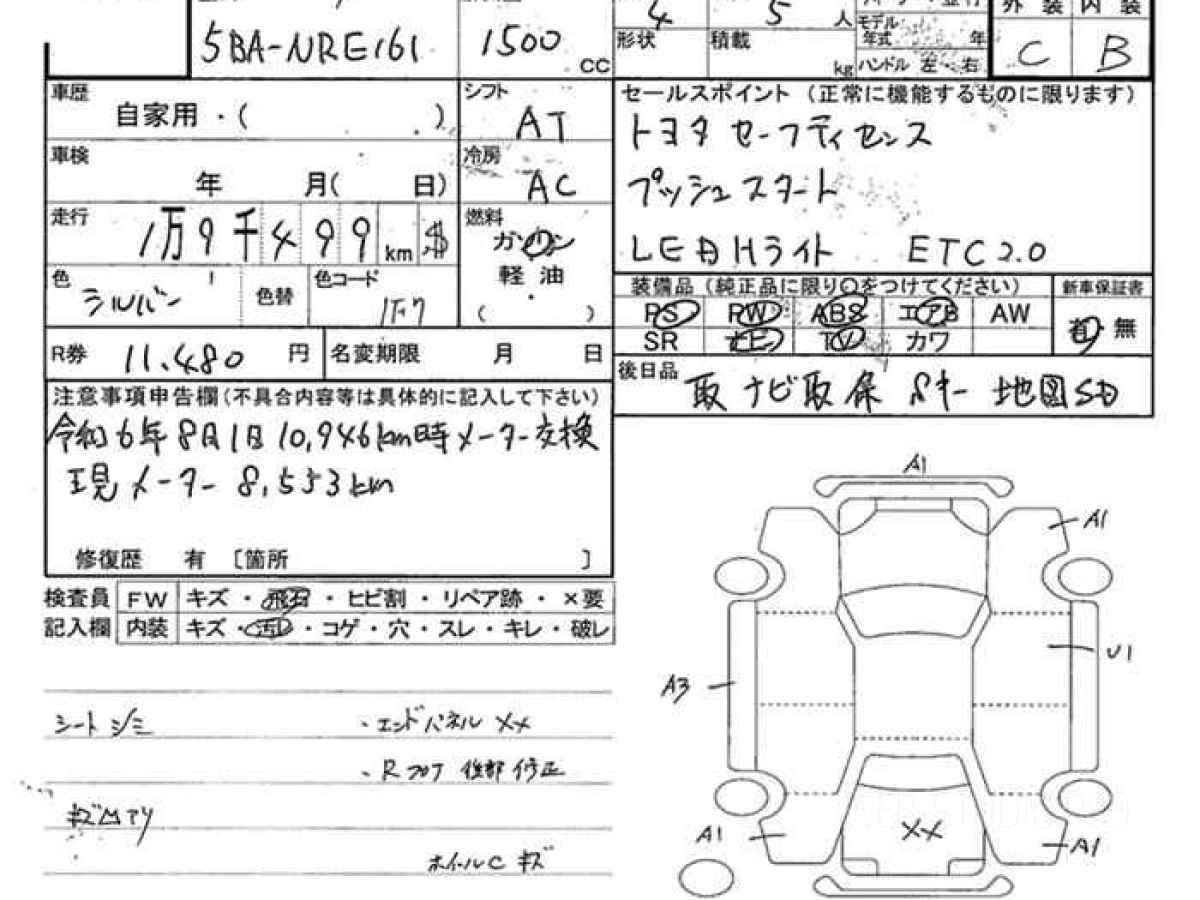 4
5
人
外 装
内 装
5BA-NRE161
1500
CC
形状
積載
kg
モデル
年式
年
ハンドル 左・右
C
B
車歴
自家用・( )
シフト
AT
車検
年 月( 日)
冷房
AC
走行
1万9千499 km $
燃料
ガソリン
軽油
( )
色
シルバー
色替
色コード
1F7
R券
11,480 円
名変期限 月 日
セールスポイント(正常に機能するものに限ります)
トヨタ セーフティセンス
プッシュスタート
LED Hライト ETC2.0
装備品(純正品に限り○をつけてください)
新車保証書
PS PW ABS エアB AW
SR ナビ TV カワ
有 無
後日品
取 ナビ取 保 Sキー 地図SD
注意事項申告欄(不具合内容等は具体的に記入して下さい)
令和6年8月1日10,946km時メーター交換
現メーター 8,553km
修復歴 有 〔箇所 〕
検査員 FW キズ・飛石・ヒビ割・リペア跡・×要
記入欄 内装 キズ・汚レ・コゲ・穴・スレ・キレ・破レ
シート シミ
・エンドパネル XX
・Rフロア 後部 修正
ホイールC キズ
A1
A1
U1
A3
A1
XX
A1